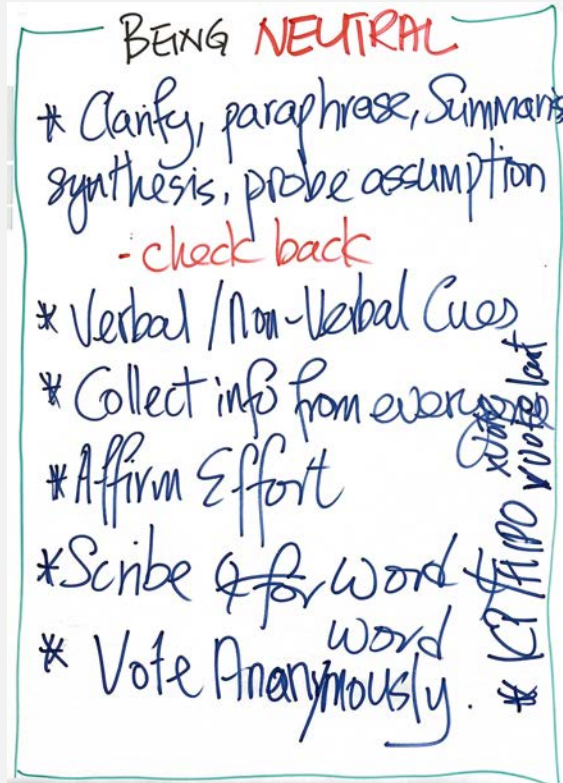 BEING NEUTRAL
* Clarify, paraphrase, Summaris
synthesis, probe assumption
- check back
* Verbal / Non-Verbal Cues
* Collect info from everyone
* Affirm Effort
* Scribe for word
word
* Vote Ananymously.
vote last